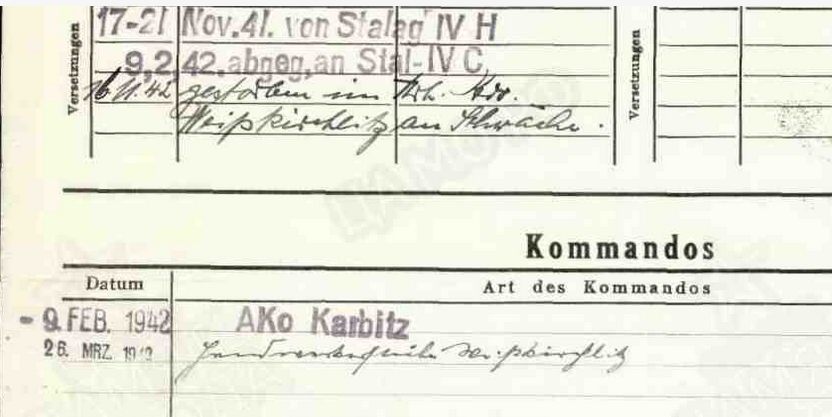 Versetzungen
17-21 Nov. 41. von Stalag IV H
9.2.42. abgeg, an Stal-IV C,
16.11.42 gestorben im Krh. Kdo.
Weißkirchlitz an Schwäche.
Versetzungen
Kommandos
Datum
Art des Kommandos
- 9. FEB. 1942 AKo Karbitz
26. MRZ. 1942 Weißkirchlitz